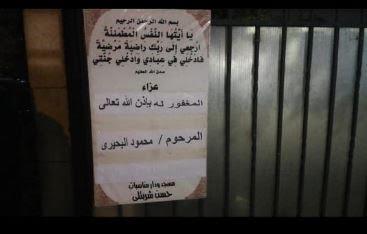 بسم الله الرحمن الرحيم
يا أيتها النفس المطمئنة
ارجعي إلى ربك راضية مرضية
فادخلي في عبادي وادخلي جنتي
صدق الله العظيم
عزاء
المغفور له بإذن الله تعالى
المرحوم / محمود البحيرى
مسجد ودار مناسبات
حسن شربتلى